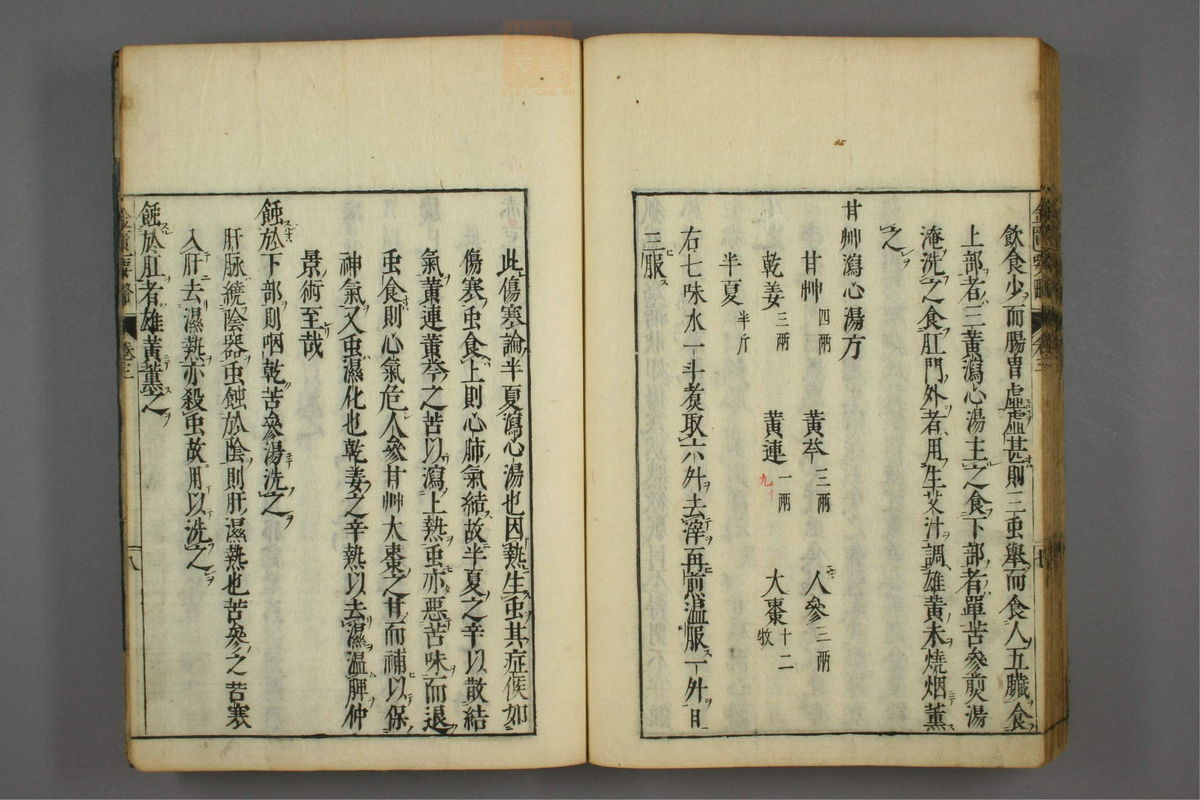 飲食少而腸胃虛虛甚則三虫舉而食人五臟食
上部者三黃瀉心湯主之食下部者單苦參煎湯
淹洗之食肛門外者用生艾汁調雄黃末燒烟薰
之
甘艸瀉心湯方
甘艸四兩 黃芩三兩 人參三兩
乾姜三兩 黃連一兩 大棗十二牧
半夏半斤
右七味水一斗煑取六升去滓再煎溫服一升日
三服
此傷寒論半夏瀉心湯也因熱生虫其症候如
傷寒虫食上則心肺氣結故半夏之辛以散結
氣黃連黃芩之苦以瀉上熱虫亦惡苦味而退
虫食則心氣危人參甘艸大棗之甘而補以保
神氣又虫濕化也乾姜之辛熱以去濕溫脾仲
景術至哉
蝕於下部則咽乾苦參湯洗之
肝脉繞陰器虫蝕於陰則肝濕熱也苦參之苦寒
入肝去濕熱亦殺虫故用以洗之
蝕於肛者雄黃薰之
卷三
八